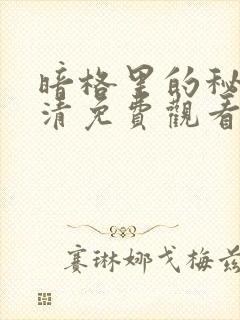 暗格里的秘
清免費觀看
赛琳娜戈梅兹